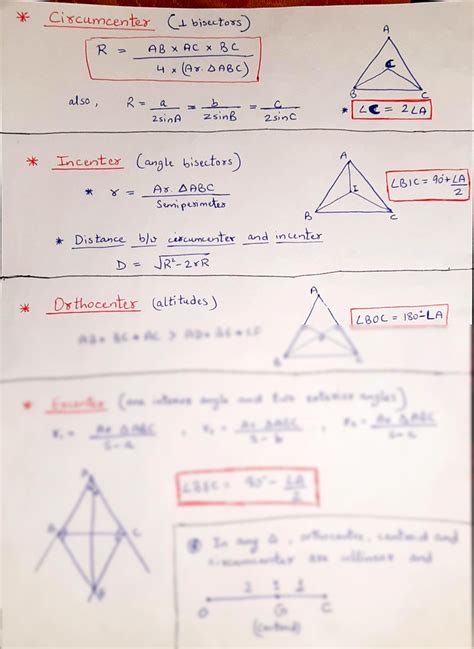 * Circumcenter (⊥ bisectors)
R = AB × AC × BC / 4 × (Ar. ΔABC)
also, R = a/2sinA = b/2sinB = c/2sinC
A
C
B C
* ∠C = 2∠A
* Incenter (angle bisectors)
* r = Ar. ΔABC / Semiperimeter
A
I
B C
∠BIC = 90° + ∠A/2
* Distance b/w circumcenter and incenter
D = √R²-2rR
* Orthocenter (altitudes)
A
B C
∠BOC = 180°-∠A
AB + BC + AC > AD + BE + CF
* Excenter (one interior angle and two exterior angles)
r₁ = Ar ΔABC / S-a , r₂ = Ar ΔABC / S-b , r₃ = Ar ΔABC / S-c
= 90° - ∠A/2
A
B C
In any Δ, orthocentre, centroid and
circumcenter are collinear and
2 : 1
O G C
(centroid)